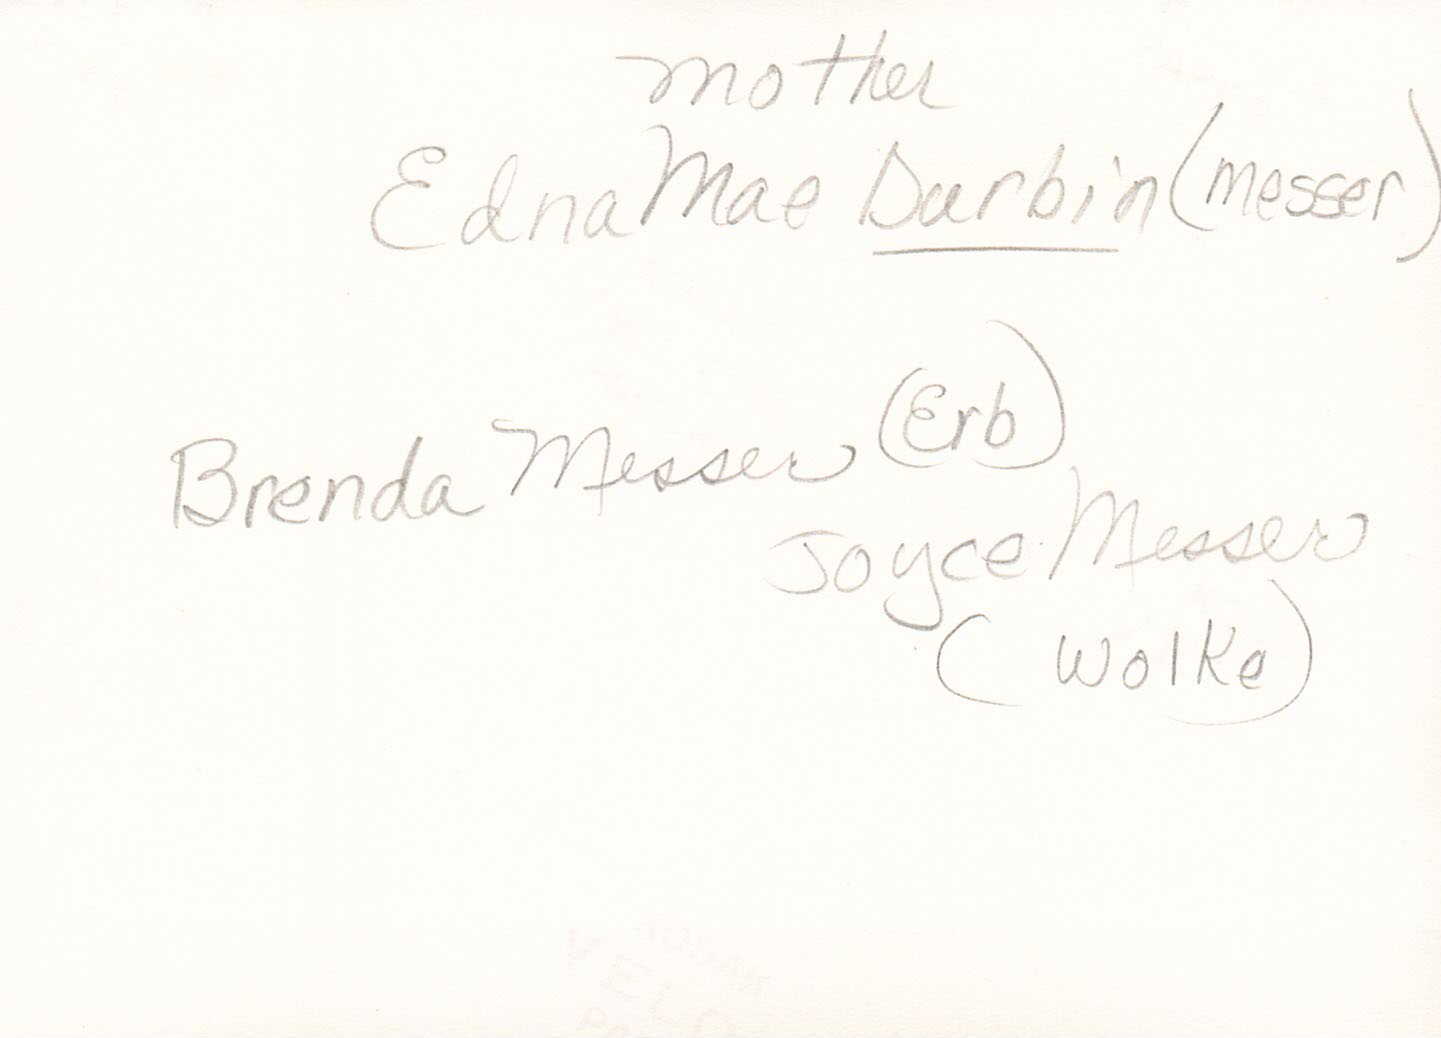 mother
Edna Mae Durbin (messer)
Brenda Messer (Erb)
Joyce Messer
(Wolke)
KODAK
VELO
PA